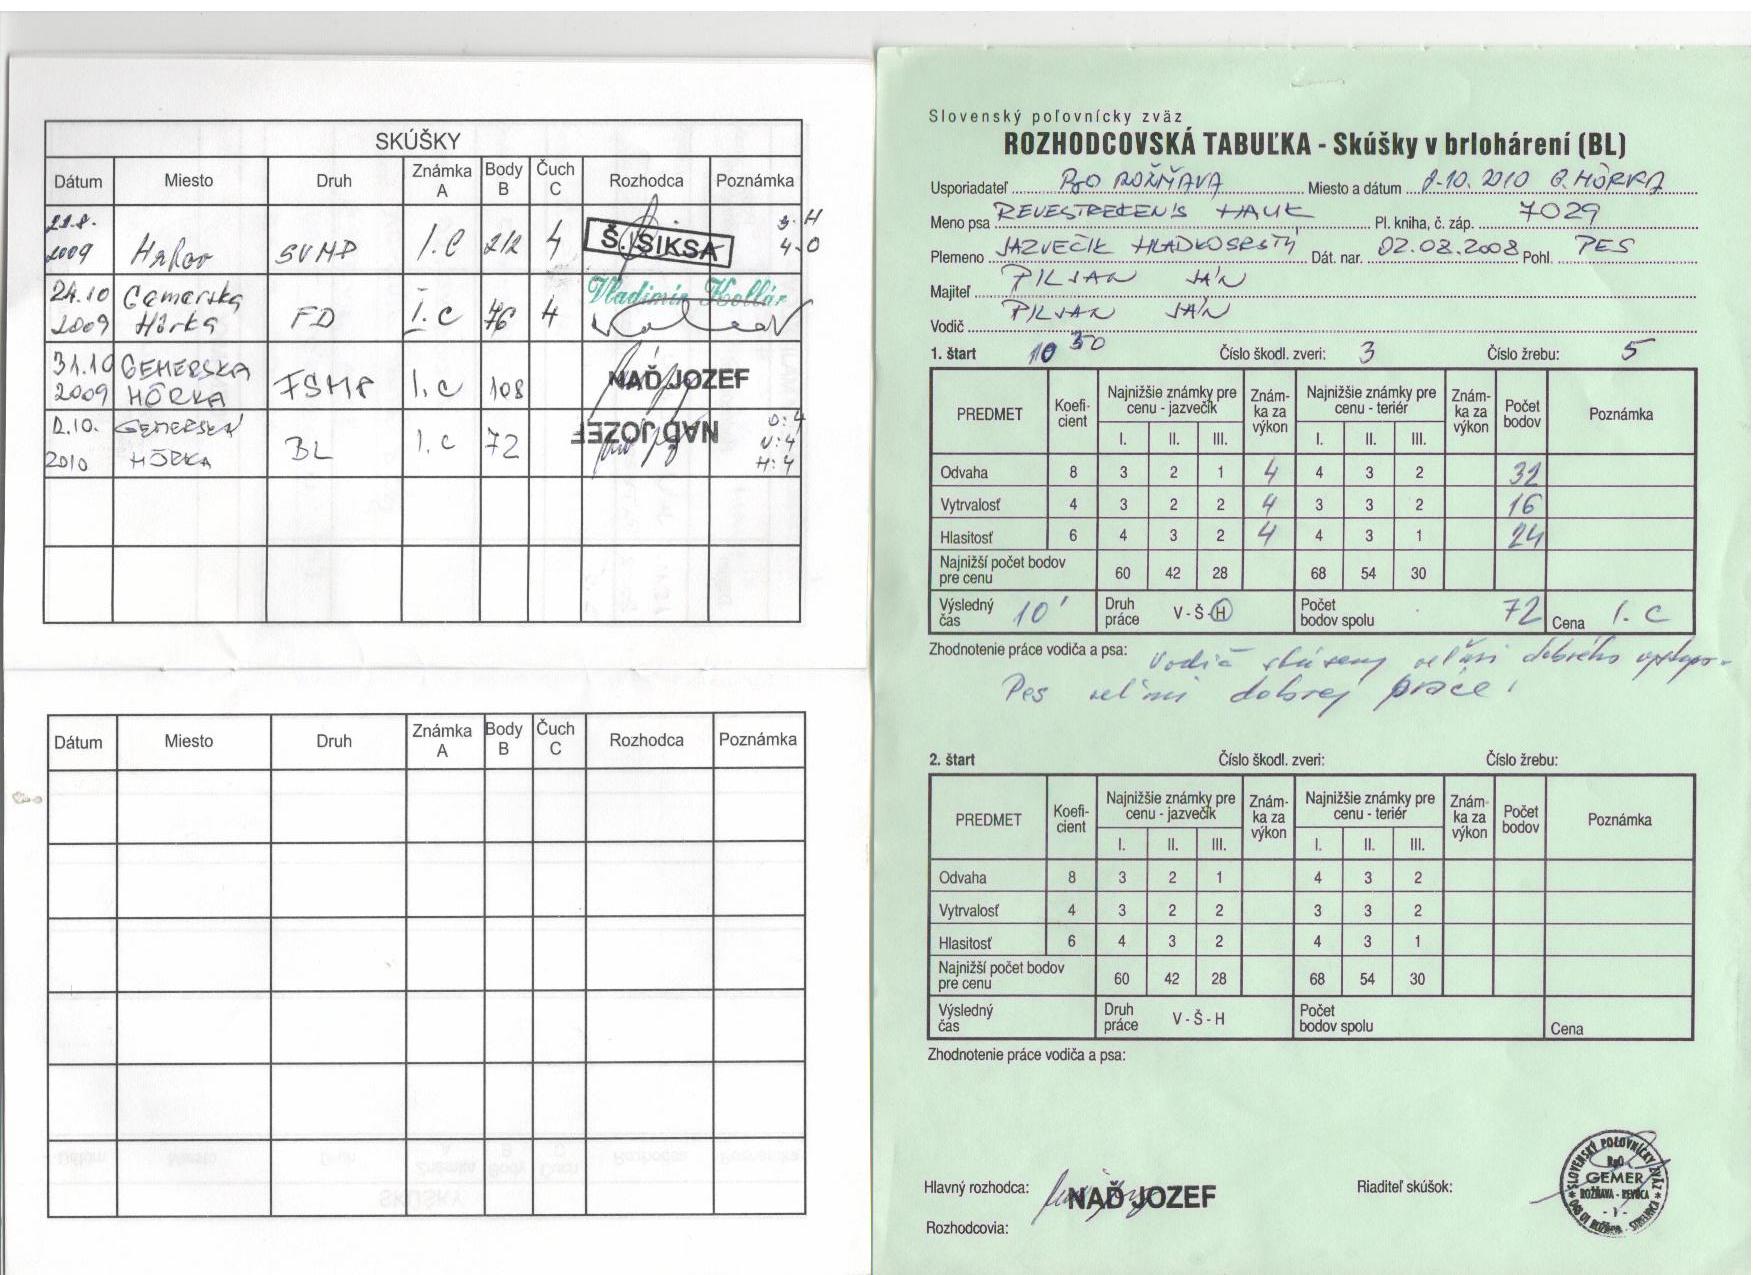 SKÚŠKY
Dátum Miesto Druh Známka A Body B Čuch C Rozhodca Poznámka
2009 SVMP I.C 212 4 Š. ŠIKSA 3-H 4-O
24.10 2009 Gemerská Hôrka FD I.C 76 4 Vladimír Kollár
31.10 2009 GEMERSKA HÔRKA FSMP I.C 108 NAĎ JOZEF
2010 GEMERSKÁ HÔRKA BL I.C 72 NAĎ JOZEF O:4 V:4 H:4
Dátum Miesto Druh Známka A Body B Čuch C Rozhodca Poznámka
Slovenský poľovnícky zväz
ROZHODCOVSKÁ TABUĽKA - Skúšky v brlohárení (BL)
Usporiadateľ RgO ROŽŇAVA Miesto a dátum 10. 2010 G. HÔRKA
Meno psa HAUK Pl. kniha, č. záp. 7029
Plemeno JAZVEČÍK HLADKOSRSTÝ Dát. nar. 02.08.2008 Pohl. PES
Majiteľ PILJAN JÁN
Vodič PILJAN JÁN
1. štart 10 30 Číslo škodl. zveri: 3 Číslo žrebu: 5
PREDMET Koeficient Najnižšie známky pre cenu - jazvečík Znám-ka za výkon Najnižšie známky pre cenu - teriér Znám-ka za výkon Počet bodov Poznámka
I. II. III. I. II. III.
Odvaha 8 3 2 1 4 4 3 2 32
Vytrvalosť 4 3 2 2 4 3 3 2 16
Hlasitosť 6 4 3 2 4 4 3 1 24
Najnižší počet bodov pre cenu 60 42 28 68 54 30
Výsledný čas 10' Druh práce V - Š - H Počet bodov spolu 72 Cena I. C
Zhodnotenie práce vodiča a psa: Vodič skúsený veľmi dobrého
Pes veľmi dobrej práce.
2. štart Číslo škodl. zveri: Číslo žrebu:
PREDMET Koeficient Najnižšie známky pre cenu - jazvečík Znám-ka za výkon Najnižšie známky pre cenu - teriér Znám-ka za výkon Počet bodov Poznámka
I. II. III. I. II. III.
Odvaha 8 3 2 1 4 3 2
Vytrvalosť 4 3 2 2 3 3 2
Hlasitosť 6 4 3 2 4 3 1
Najnižší počet bodov pre cenu 60 42 28 68 54 30
Výsledný čas Druh práce V - Š - H Počet bodov spolu Cena
Zhodnotenie práce vodiča a psa:
Hlavný rozhodca: NAĎ JOZEF Riaditeľ skúšok:
Rozhodcovia:
SLOVENSKÝ POĽOVNÍCKY ZVÄZ
RgO
GEMER
ROŽŇAVA - REVÚCA
- 1 -